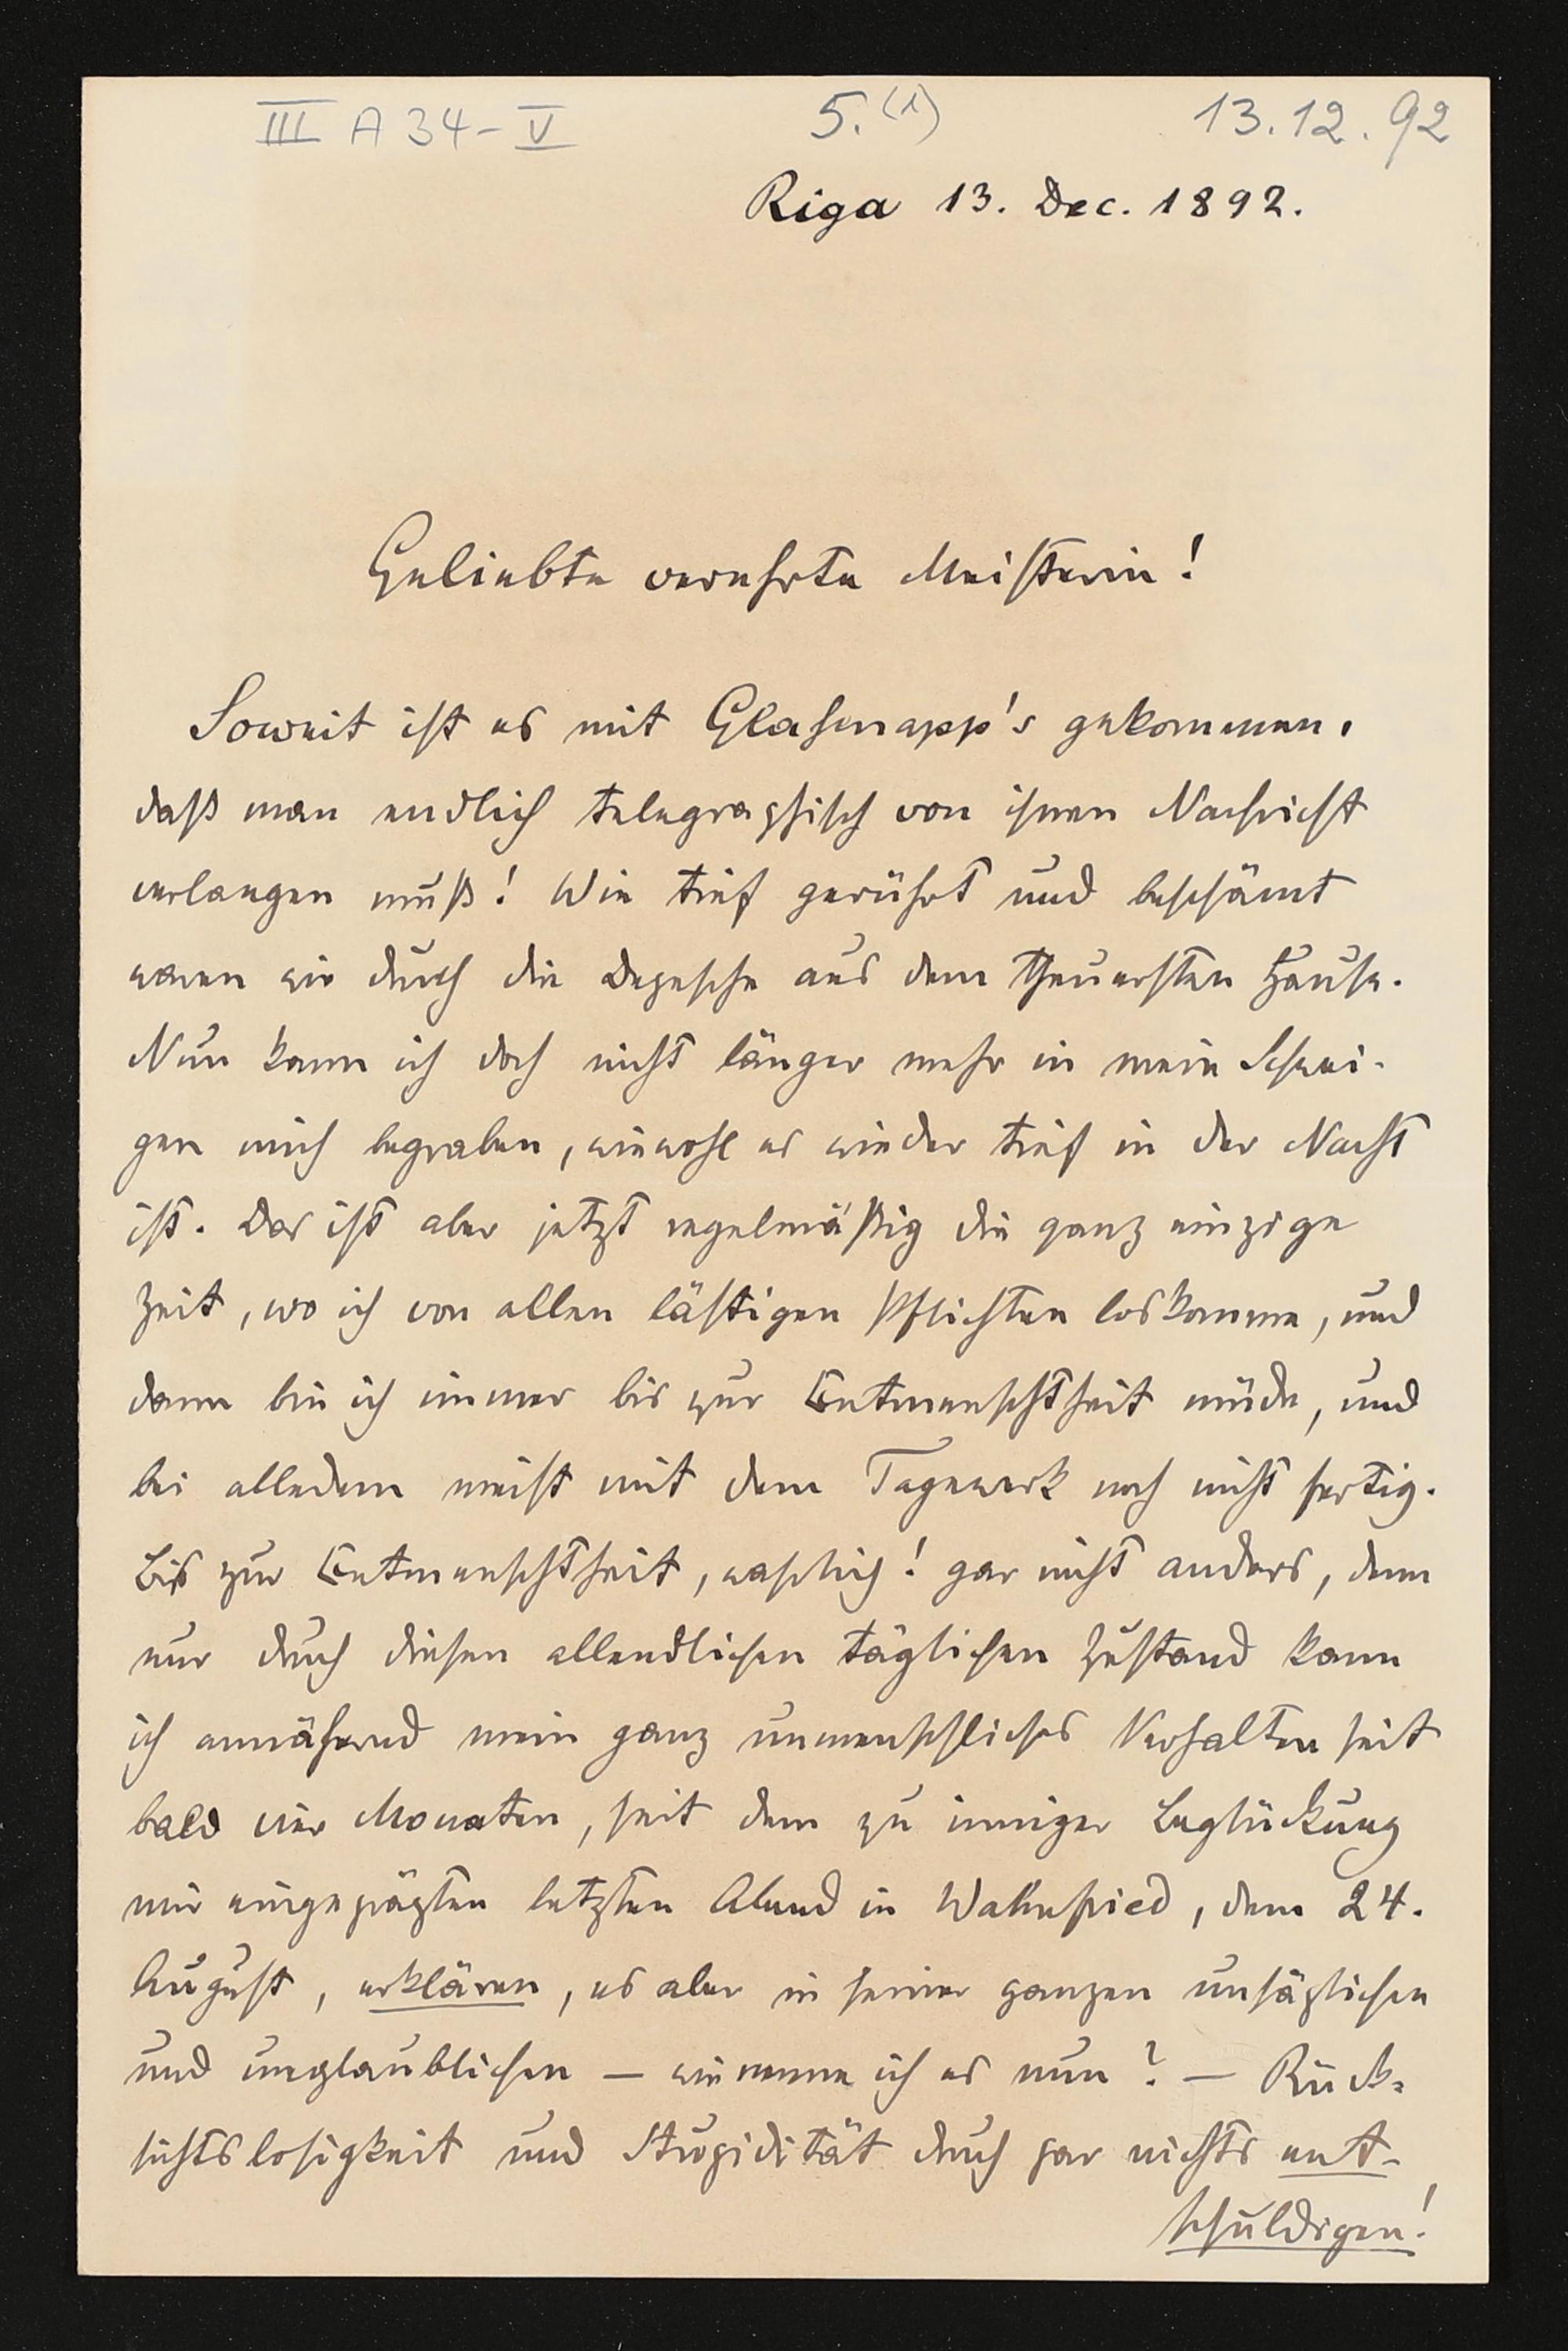 III A 34-V 5.(1) 13.12.92
Riga 13. Dec. 1892.
Geliebte verehrte Meisterin!
Soweit ist es mit Glasenapp's gekommen,
daß man endlich telegraphisch von ihnen Nachricht
verlangen muß! Wie tief gerührt und beschämt
waren wir durch die Depesche aus dem theuersten Hause.
Nun kann ich doch nicht länger mehr in mein Schwei-
gen mich begraben, wiewohl es wieder tief in der Nacht
ist. Das ist aber jetzt regelmäßig die ganz einzige
Zeit, wo ich von allen lästigen Pflichten loskomme, und
dann bin ich immer bis zur Entmenschtheit müde, und
bei alledem meist mit dem Tagewerk noch nicht fertig.
Bis zur Entmenschtheit, wahrlich! gar nicht anders, denn
nur durch diesen allendlichen täglichen Zustand kann
ich annähernd mein ganz unmenschliches Verhalten seit
bald vier Monaten, seit dem zu inniger Beglückung
mir eingeprägten letzten Abend in Wahnfried, dem 24.
August, erklären, es aber in seiner ganzen unsäglichen
und unglaublichen — wie nenne ich es nun? — Rück-
sichtslosigkeit und Stupidität durch gar nichts ent-
schuldigen!